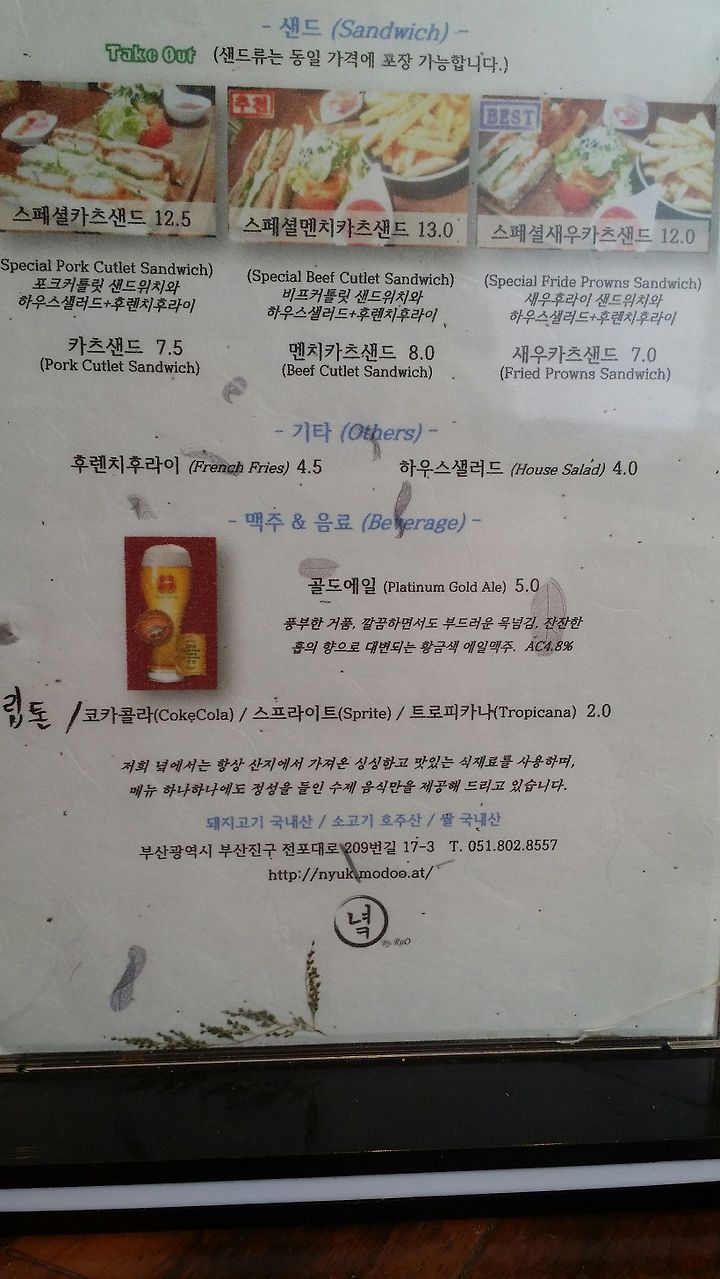 - 샌드 (Sandwich) -
Take Out (샌드류는 동일 가격에 포장 가능합니다.)
추천
BEST
스페셜카츠샌드 12.5
스페셜멘치카츠샌드 13.0
스페셜새우카츠샌드 12.0
Special Pork Cutlet Sandwich)
포크커틀릿 샌드위치와
하우스샐러드+후렌치후라이
(Special Beef Cutlet Sandwich)
비프커틀릿 샌드위치와
하우스샐러드+후렌치후라이
(Special Fride Prowns Sandwich)
새우후라이 샌드위치와
하우스샐러드+후렌치후라이
카츠샌드 7.5
(Pork Cutlet Sandwich)
멘치카츠샌드 8.0
(Beef Cutlet Sandwich)
새우카츠샌드 7.0
(Fried Prowns Sandwich)
- 기타 (Others) -
후렌치후라이 (French Fries) 4.5
하우스샐러드 (House Salad) 4.0
- 맥주 & 음료 (Beverage) -
골드에일 (Platinum Gold Ale) 5.0
풍부한 거품, 깔끔하면서도 부드러운 목넘김, 잔잔한
홉의 향으로 대변되는 황금색 에일맥주. AC4.8%
립톤 / 코카콜라(CokeCola) / 스프라이트(Sprite) / 트로피카나(Tropicana) 2.0
저희 녘에서는 항상 산지에서 가져온 싱싱하고 맛있는 식재료를 사용하며,
메뉴 하나하나에도 정성을 들인 수제 음식만을 제공해 드리고 있습니다.
돼지고기 국내산 / 소고기 호주산 / 쌀 국내산
부산광역시 부산진구 전포대로 209번길 17-3 T. 051.802.8557
http://nyuk.modoo.at/
녘
By. RuO